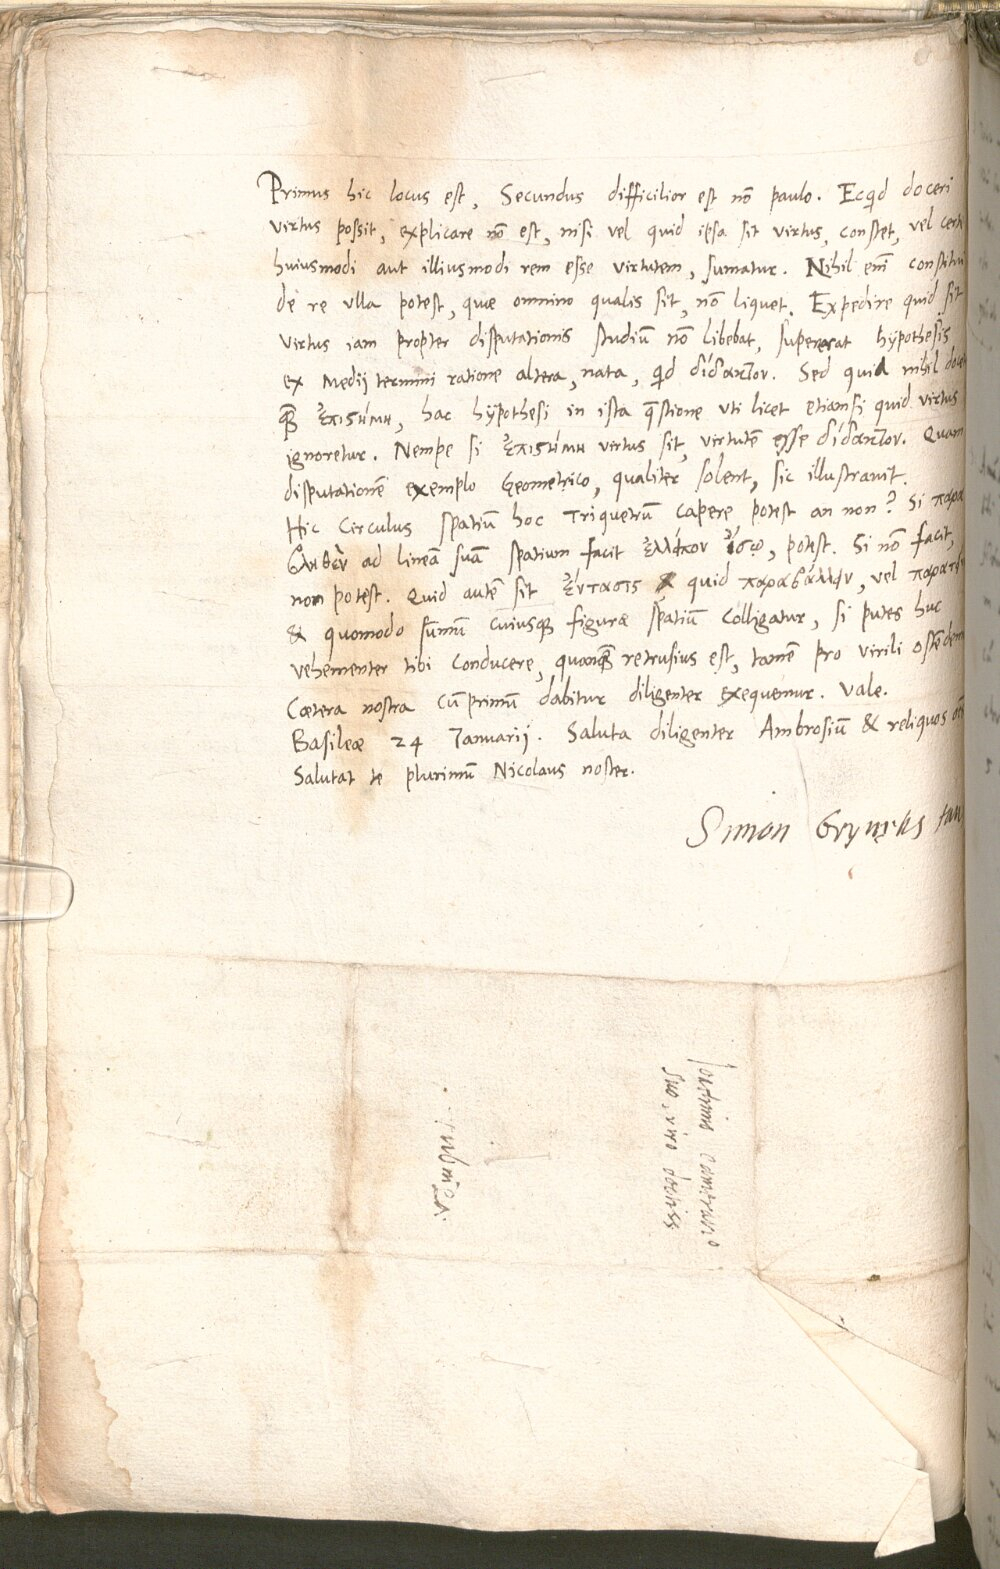 Primus hic locus est, Secundus difficilior est nō paulo. Ecqd doceri
virtus possit, explicare nō est, nisi vel quid ipsa sit virtus, constet, vel certe
huiusmodi aut illiusmodi rem esse virtutem, sumatur. Nihil em̄ constitu
de re vlla potest, quæ omnino qualis sit, nō liquet. Expedire quid sit
virtus iam propter disputationis studiū nō libebat, supererat hypothesis
ex Medij termini ratione altera, nata, qd διδακτον. Sed quia nihil doce
qȝ̄ ἐπιστήμη, hac hypothesi in ista q̄stione vti licet etiamsi quid virtus
ignoretur. Nempe si ἐπιστήμη virtus sit, virtutē esse διδακτον. Quam
disputationē exemplo Geometrico, qualiter solent, sic illustravit.
Hic Circulus spatiū hoc Triquetrū capere potest an non? Si παρα
βληθὲν ad lineā suā spatium facit ἐλλεῖπον ἴσῳ, potest. Si nō facit,
non potest. Quid autē sit ἔντασις & quid παραβάλλειν, vel παρατει
& quomodo sūmū cuiusqȝ figuræ spatiū colligatur, si putes huc
vehementer tibi conducere, quanqȝ̄ retrusius est, tamē pro virili ostēdem
Cætera nostra cū primū dabitur diligenter exequemur. Vale.
Basileæ 24 Ianuarij. Saluta diligenter Ambrosiū & reliquos
Salutat te plurimū Nicolaus noster.
Simon Grynęus
Ioachimo Camerario
suo, viro doctiss